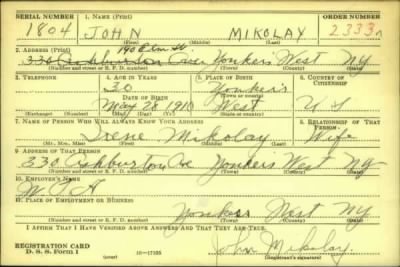 SERIAL NUMBER 1. NAME (Print) ORDER NUMBER
1804 JOHN MIKOLAY 2333A
(First) (Middle) (Last)
190 Elm St
2. ADDRESS (Print)
330 Ashburton Ave Yonkers West NY
(Number and street or R. F. D. number) (Town) (County) (State)
3. TELEPHONE 4. AGE IN YEARS 5. PLACE OF BIRTH 6. COUNTRY OF CITIZENSHIP
30 Yonkers
DATE OF BIRTH (Town or county)
May 28 1910 West U S
(Exchange) (No.) (Mo.) (Day) (Yr.) (State or country)
7. NAME OF PERSON WHO WILL ALWAYS KNOW YOUR ADDRESS 8. RELATIONSHIP OF THAT PERSON
Irene Mikolay Wife
(Mr., Mrs., Miss) (First) (Middle) (Last)
9. ADDRESS OF THAT PERSON
330 Ashburton Ave Yonkers West NY
(Number and street or R. F. D. number) (Town) (County) (State)
10. EMPLOYER'S NAME
W P A
11. PLACE OF EMPLOYMENT OR BUSINESS
Yonkers West NY
(Number and street or R. F. D. number) (Town) (County) (State)
I AFFIRM THAT I HAVE VERIFIED ABOVE ANSWERS AND THAT THEY ARE TRUE.
REGISTRATION CARD
D. S. S. Form 1 (over) 16—17105
John Mikolay.
(Registrant's signature)